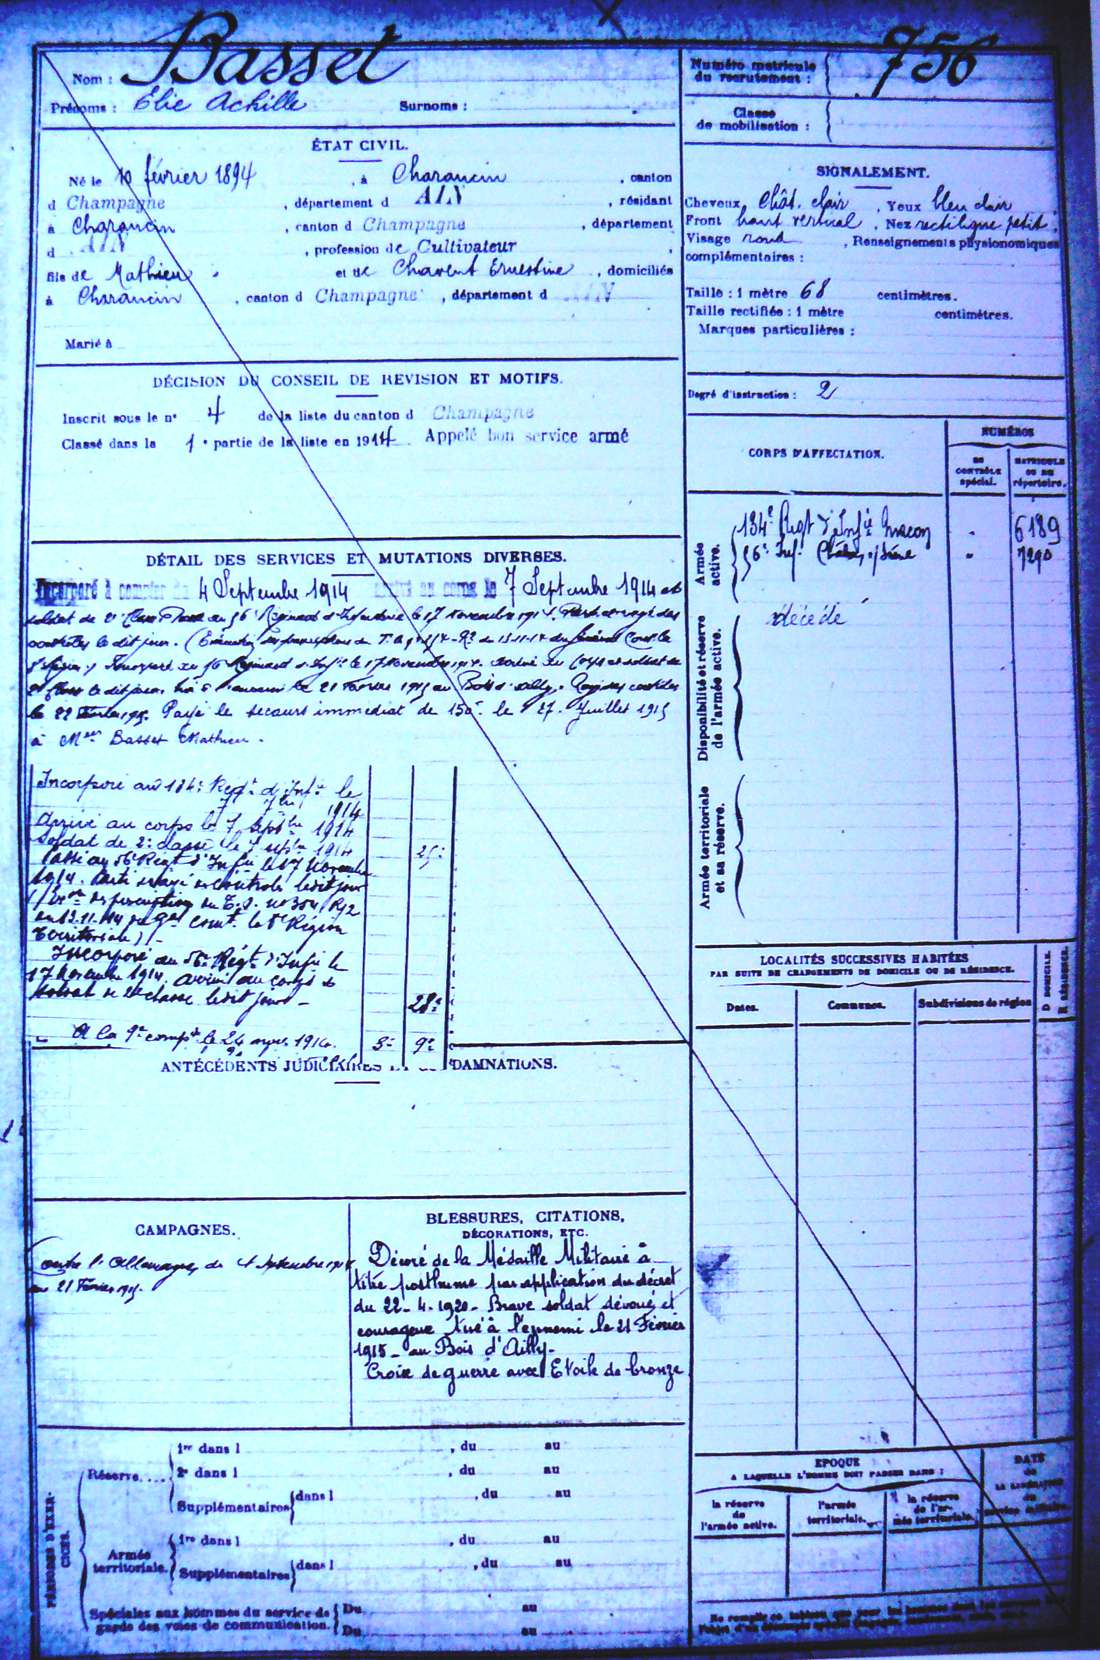 Nom : Basset
Prénoms : Elie Achille Surnoms :
Numéro matricule du recrutement : 756
Classe de mobilisation :
ÉTAT CIVIL.
Né le 10 février 1894, à Charancin, canton
d Champagne, département d AIN, résidant
à Charancin, canton d Champagne, département
d AIN, profession de Cultivateur
fils de Mathieu et de Charent Ernestine, domiciliés
à Charancin, canton d Champagne, département d AIN
Marié à
SIGNALEMENT.
Cheveux Chât. clair, Yeux bleu clair
Front haut vertical, Nez rectiligne petit,
Visage rond, Renseignements physionomiques
complémentaires :
Taille : 1 mètre 68 centimètres.
Taille rectifiée : 1 mètre centimètres.
Marques particulières :
Degré d'instruction : 2
DÉCISION DU CONSEIL DE REVISION ET MOTIFS.
Inscrit sous le n° 4 de la liste du canton d Champagne
Classé dans la 1e partie de la liste en 1914. Appelé bon service armé
CORPS D'AFFECTATION.
NUMÉROS
au CONTRÔLE spécial.
MATRICULE OU AU répertoire.
Armée active.
134e Regt d'Infie Macon " 6189
56e Inf. Chalon s/ Saône " 7290
Disponibilité et réserve de l'armée active.
décédé
Armée territoriale et sa réserve.
DÉTAIL DES SERVICES ET MUTATIONS DIVERSES.
Incorporé à compter du 4 Septembre 1914 arrivé au corps le 7 Septembre 1914 et
soldat de 2e Classe. Passé au 56e Régiment d'Infanterie le 17 Novembre 1914. Parti et rayé des
contrôles le dit jour.
Incorporé au 56 Régiment d'Infie le 17 Novembre 1914. Arrivé au Corps et soldat de
2e Classe le dit jour. Tué à l'ennemi le 21 Février 1915 au Bois d'Ailly. Rayé des contrôles
le 22 Février 1915. Payé le secours immédiat de 150f le 27 Juillet 1915
à Mr Basset Mathieu.
Incorporé au 134e Régt d'Infie le
7 7bre 1914
Arrivé au corps le 7 Septbre 1914
Soldat de 2e classe le 7 septbre 1914 25e
Passé au 56e Régt d'Infie le 17 Novembre
1914. Parti et rayé des contrôles ledit jour
du 13.11.14 du Gal Comt la 8e Région
Territoriale) -
Incorporé au 56e Régt d'Infie le
17 Novembre 1914, arrivé au corps &
soldat de 2e classe ledit jour - 28e
A la 9e compie le 24 9bre 1914. 9e
ANTÉCÉDENTS JUDICIAIRES DAMNATIONS.
LOCALITÉS SUCCESSIVES HABITÉES
PAR SUITE DE CHANGEMENTS DE DOMICILE OU DE RÉSIDENCE.
Dates. Communes. Subdivisions de région D DOMICILE. R RÉSIDENCE.
CAMPAGNES.
Contre l'Allemagne, du 4 Septembre 1914
au 21 Février 1915.
BLESSURES, CITATIONS,
DÉCORATIONS, ETC.
Décoré de la Médaille Militaire à
titre posthume par application du décret
du 22-4-1920 - Brave soldat dévoué et
courageux tué à l'ennemi le 21 Février
1915 - au Bois d'Ailly -
Croix de guerre avec Etoile de bronze
PÉRIODES D'EXERCICES.
Réserve....
1re dans l , du au
2e dans l , du au
Supplémentaires dans l , du au
Armée territoriale.
1re dans l , du au
Supplémentaires dans l , du au
Spéciales aux hommes du service de garde des voies de communication. Du au
Du au
EPOQUE
A LAQUELLE L'HOMME DOIT PASSER DANS :
la réserve de l'armée active.
l'armée territoriale.
la réserve de l'armée territoriale.
DATE de LA LIBÉRATION du service militaire.